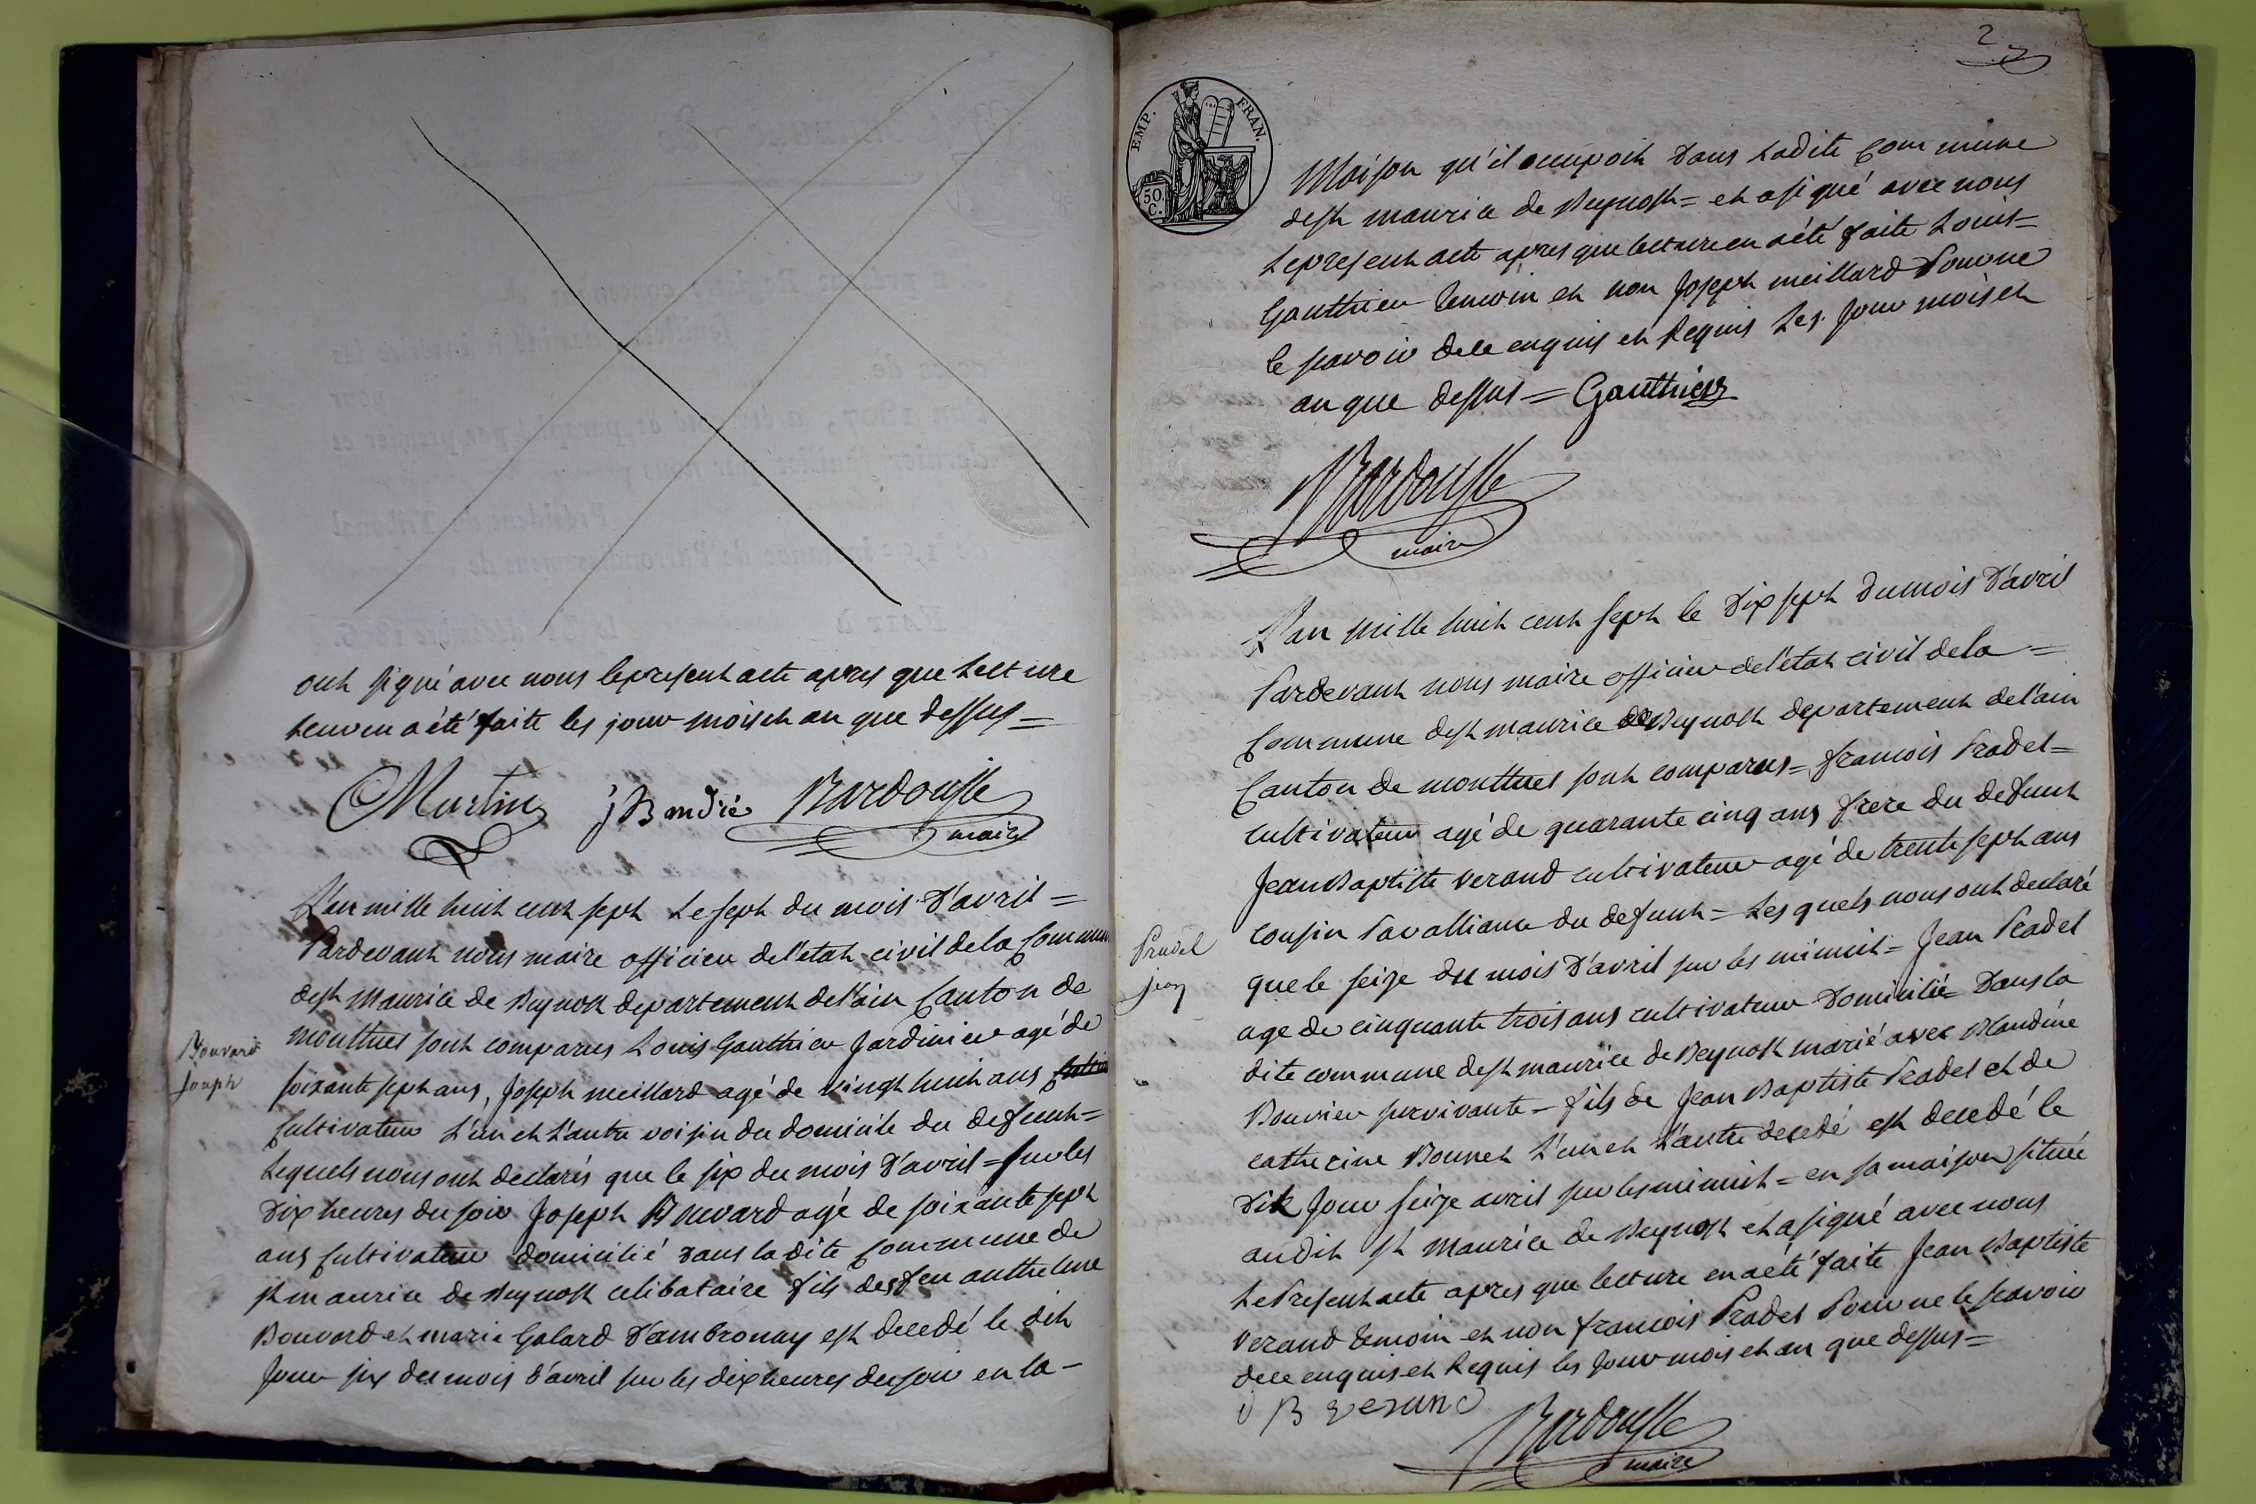 ont signé avec nous le present acte apres que lecture
leur en a été faite les jour mois et an que dessus =
Martin J B andré Bardousse
maire
L'an mille huit cent sept le sept du mois d'avril =
Pardevant nous maire officier de l'etat civil de la Commune
de st Maurice de Beynost departement de l'ain Canton de
montluel sont comparus Louis Gauthier Jardinier agé de
Bouvard
Joseph
soixante sept ans, Joseph meillard agé de vingt huit ans
Cultivateur L'un et L'autre voisin du domicile du defunt =
Lequels nous ont declarés que le six du mois d'avril = sur les
dix heures du soir Joseph Bouvard agé de soixante sept
ans Cultivateur domicilié dans la dite Commune de
st maurice de Beynost celibataire fils de feu anthelme
Bouvard et marie Galard d'ambronay est decedé le dit
Jour six du mois d'avril sur les dix heures du soir en la -
2
EMP. FRAN.
50 C.
Maison qu'il occupoit dans ladite Commune
de st maurice de Beynost = et a signé avec nous
Le present acte apres que lecture en a été faite Louis =
Gauthier temoin et non Joseph meillard Pour ne
le scavoir de ce enquis et Requis Les Jour mois et
an que dessus = Gauthier
Bardousse
maire
L'an mille huit cent sept le dix sept du mois d'avril
Pardevant nous maire officier de l'etat civil de la =
Commune de st maurice de Beynost departement de l'ain
Canton de montluel sont comparus = francois Pradel =
cultivateur agé de quarante cinq ans frere du defunt
Jean Baptiste verand cultivateur agé de trente sept ans
cousin Par alliance du defunt = Les quels nous ont declaré
Pradel
Jean
que le seize du mois d'avril sur les minuit = Jean Pradel
age de cinquante trois ans cultivateur domicilié dans la
dite commune de st maurice de Beynost marié avec Blandine
Bouvier survivante = fils de Jean Baptiste Pradel et de
catherine Bonnet L'un et L'autre decedé est decedé le
dit Jour seize avril sur les minuit = en sa maison située
audit st maurice de Beynost et a signé avec nous
Le Present acte apres que lecture en a été faite Jean Baptiste
verand temoin et non francois Pradel Pour ne le scavoir
de ce enquis et Requis les Jour mois et an que dessus =
J B verand
Bardousse
maire